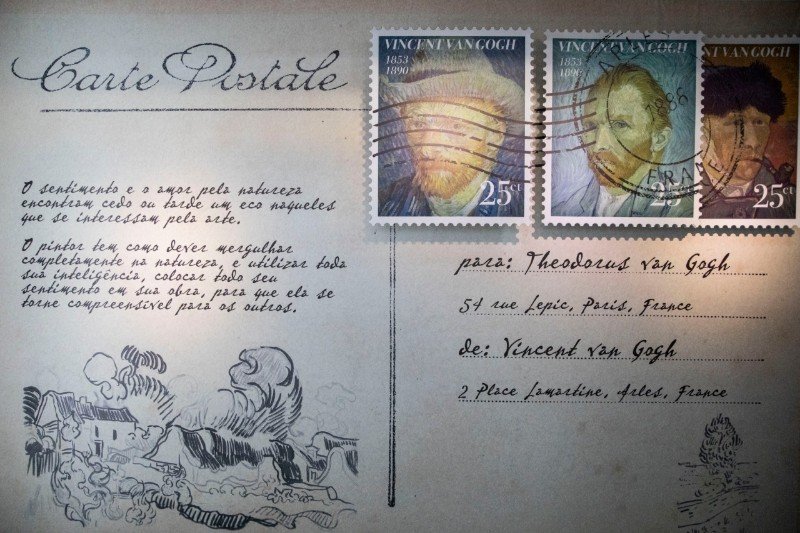 Carte Postale
VINCENT VAN GOGH
1853
1890
25ct
VINCENT VAN GOGH
1853
1890
ARLES
1886
FRANCE
25
VINCENT VAN GOGH
25ct
O sentimento e o amor pela natureza
encontram cedo ou tarde um eco naqueles
que se interessam pela arte.
O pintor tem como dever mergulhar
completamente na natureza, e utilizar toda
sua inteligência, colocar todo seu
sentimento em sua obra, para que ela se
torne compreensível para os outros.
para: Theodorus van Gogh
54 rue Lepic, Paris, France
de: Vincent van Gogh
2 Place Lamartine, Arles, France